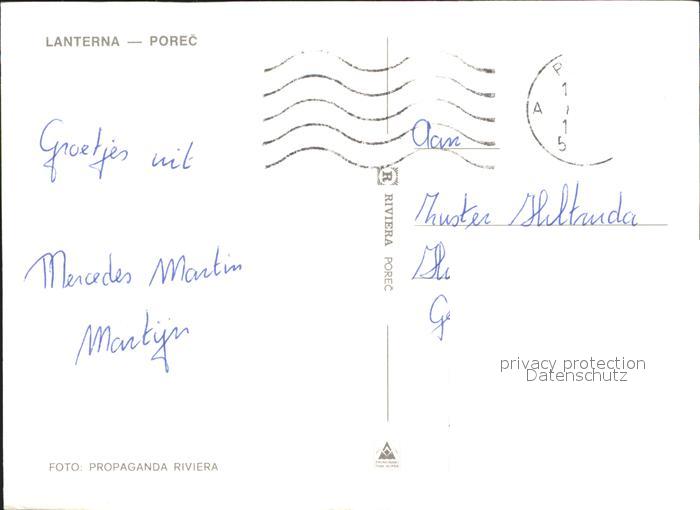 LANTERNA — POREČ
Groetjes uit
Mercedes Martin
Martijn
FOTO: PROPAGANDA RIVIERA
R RIVIERA POREČ
P
A
1
1
5
Aan
Zuster Hiltruda
privacy protection
Datenschutz